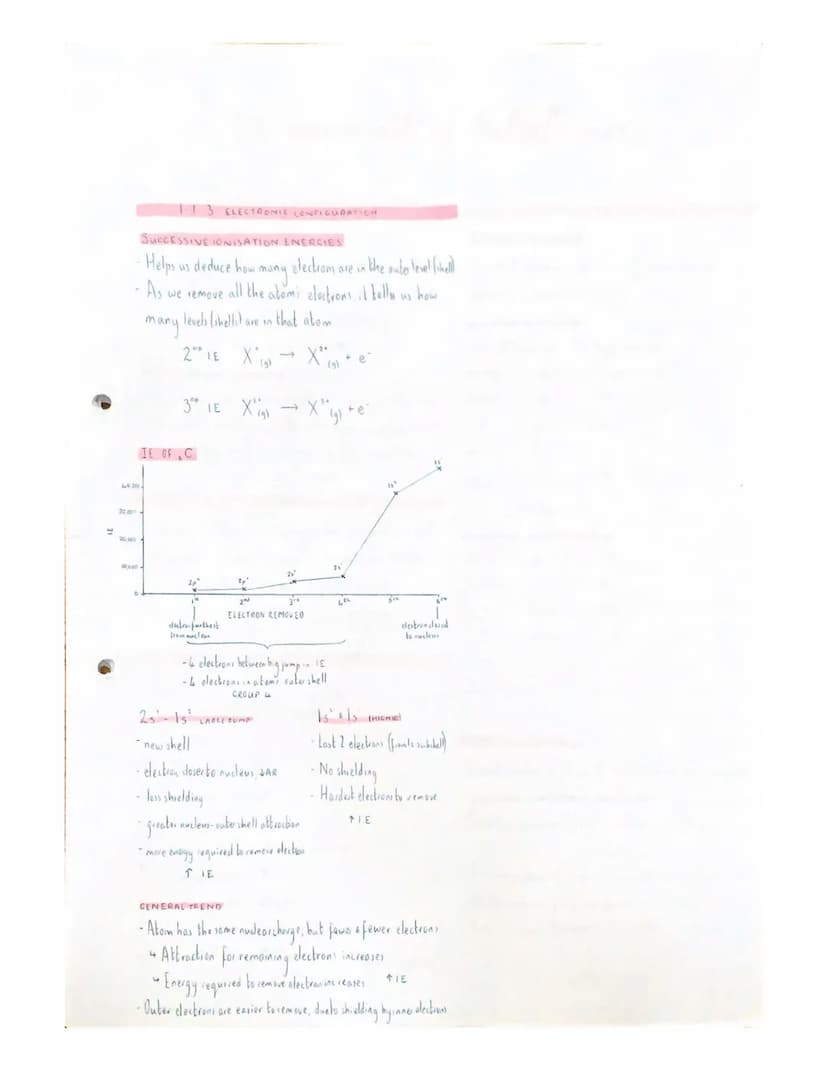 1.1.3 ELECTRONIC CONFIGURATION
SUCCESSIVE IONISATION ENERGIES
- Helps us deduce how many electrons are in the outer level (shell)
- As we remove all the atoms electrons, it tells us how
many levels (shells) are in that atom
2ND IE X⁺(g) → X²⁺(g) + e⁻
3RD IE X²⁺(g) → X³⁺(g) + e⁻
IE OF ₆C
1s¹
1s²
40,000
30,000
IE
20,000
10,000
2p²
2p¹
2s²
2s¹
0
1ST 2ND 3RD 4TH 5TH 6TH
ELECTRON REMOVED
electron furthest
from nucleus
electron closest
to nucleus
- 4 electrons between big jump in IE
- 4 electrons in atoms outer shell
GROUP 4
2s¹ - 1s² LARGE JUMP
- new shell
- electron closer to nucleus, ↓AR
- less shielding
- greater nucleus-outer shell attraction
- more energy required to remove electron
↑ IE
1s² & 1s¹ (HIGHEST)
- Last 2 electrons (final subshell)
- No shielding
- Hardest electrons to remove
↑ IE
GENERAL TREND
- Atom has the same nuclear charge, but fewer & fewer electrons
↳ Attraction for remaining electrons increases
↳ Energy required to remove electron increases ↑IE
- Outer electrons are easier to remove, due to shielding by inner electrons